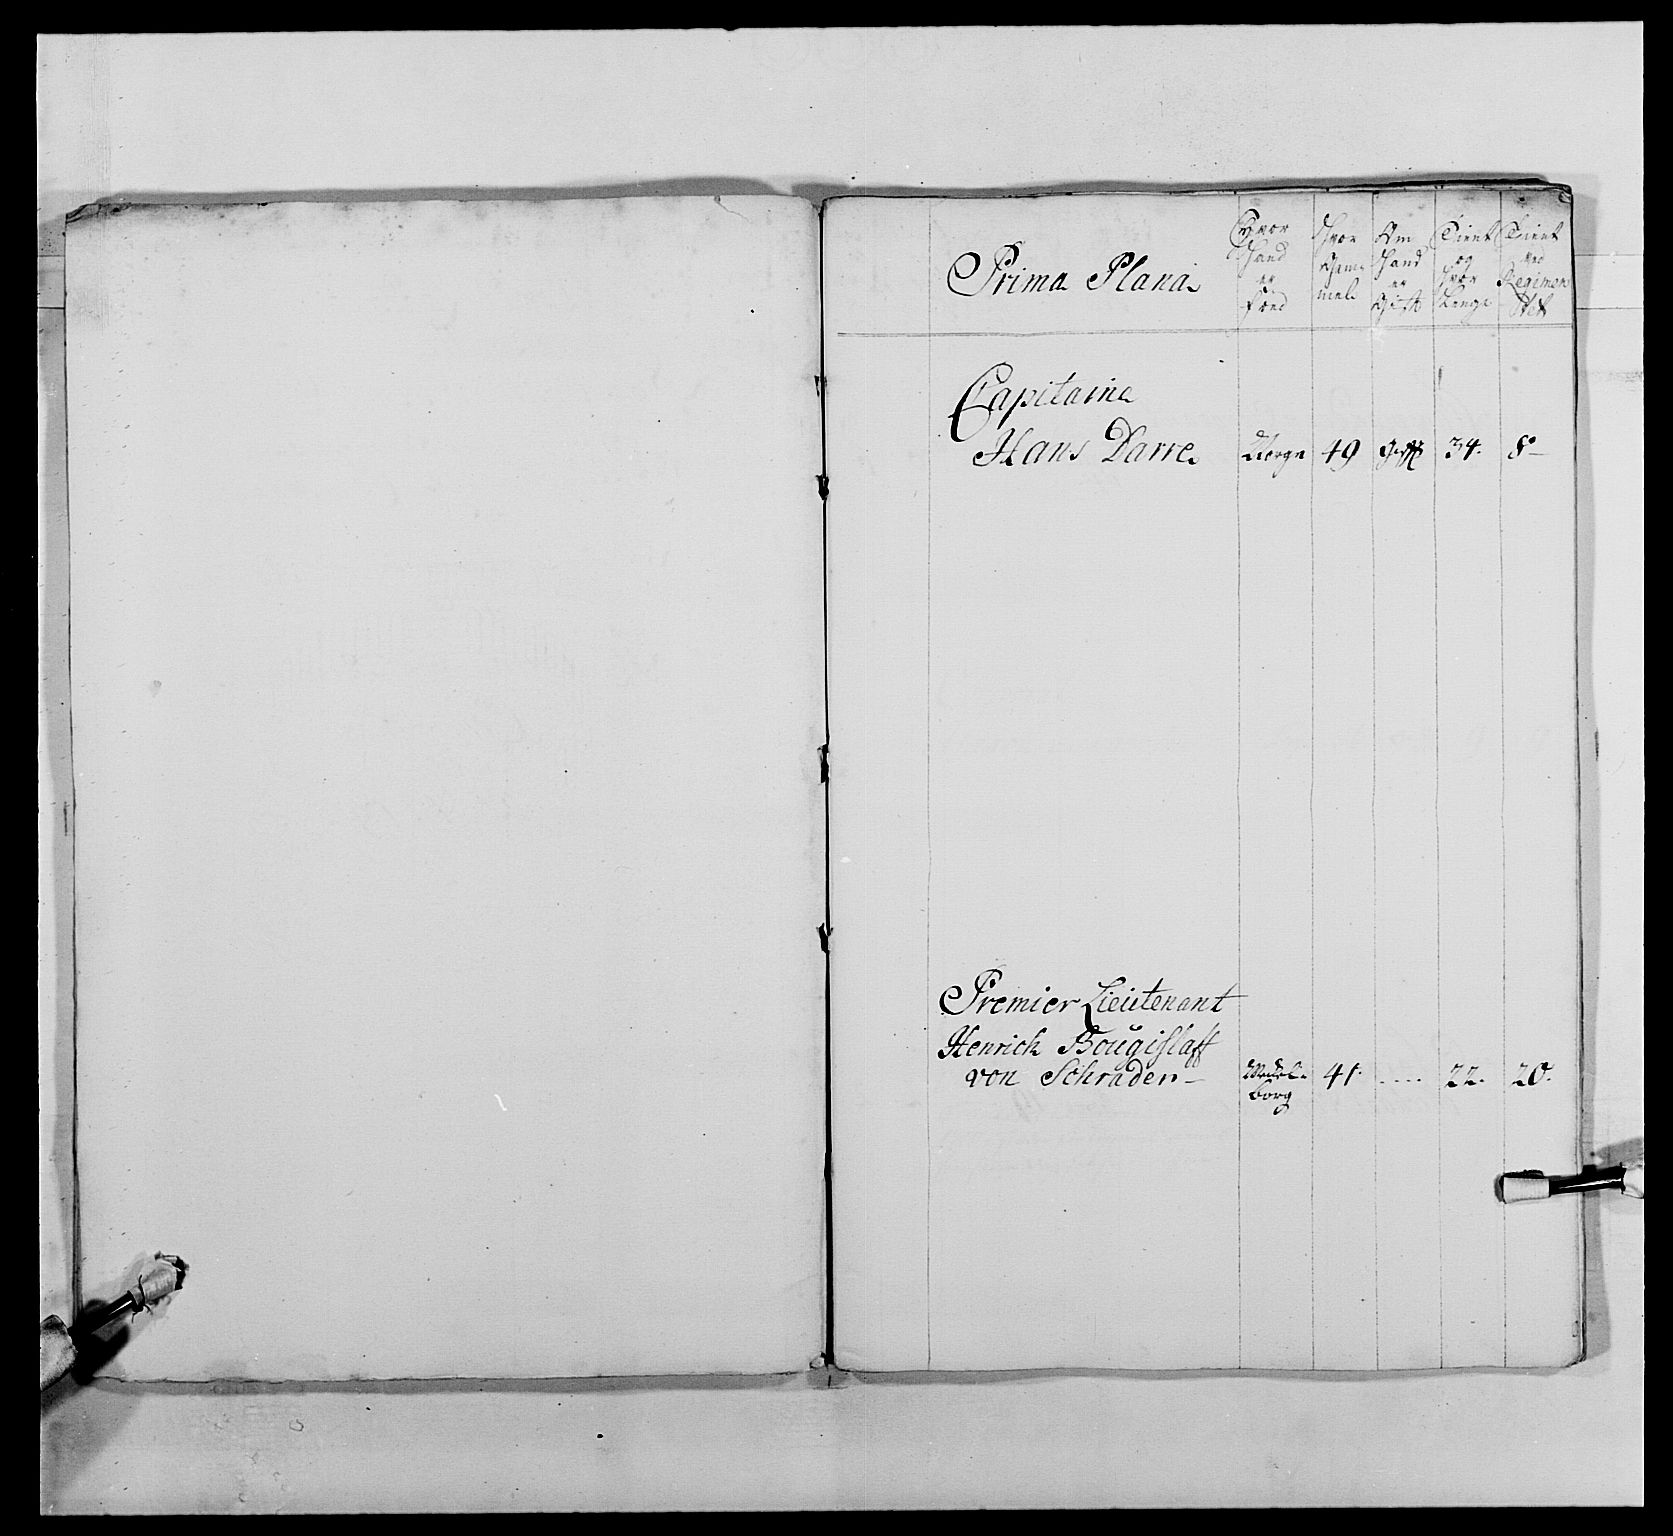 Prima Plana
Hvor Hand er fød
Hvor Gammel
Om Hand er Gift
Tient og hvor Lenge
Tient ved Regimentet
Capitaine
Hans Darre Norge 49 Gift 34. 8
Premier Lieutenant
Henrich Bougislaff
von Schrader 41. .... 22. 20.
borg